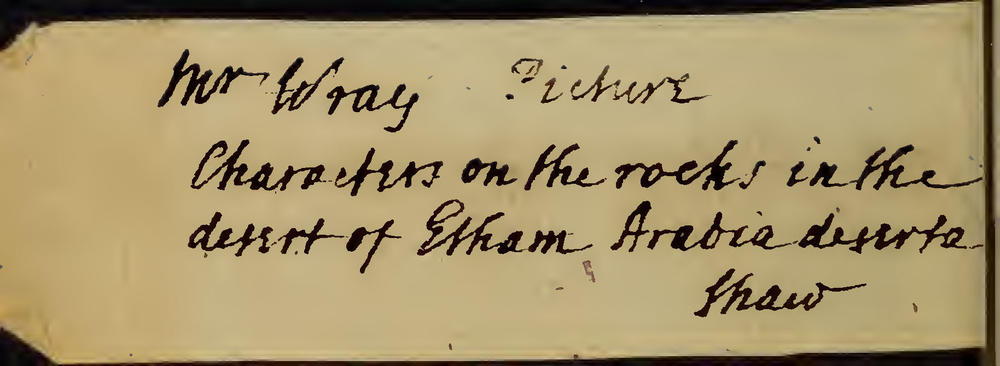 Mr Wray Picture
Characters on the rocks in the
desert of Etham Arabia deserta
Shaw